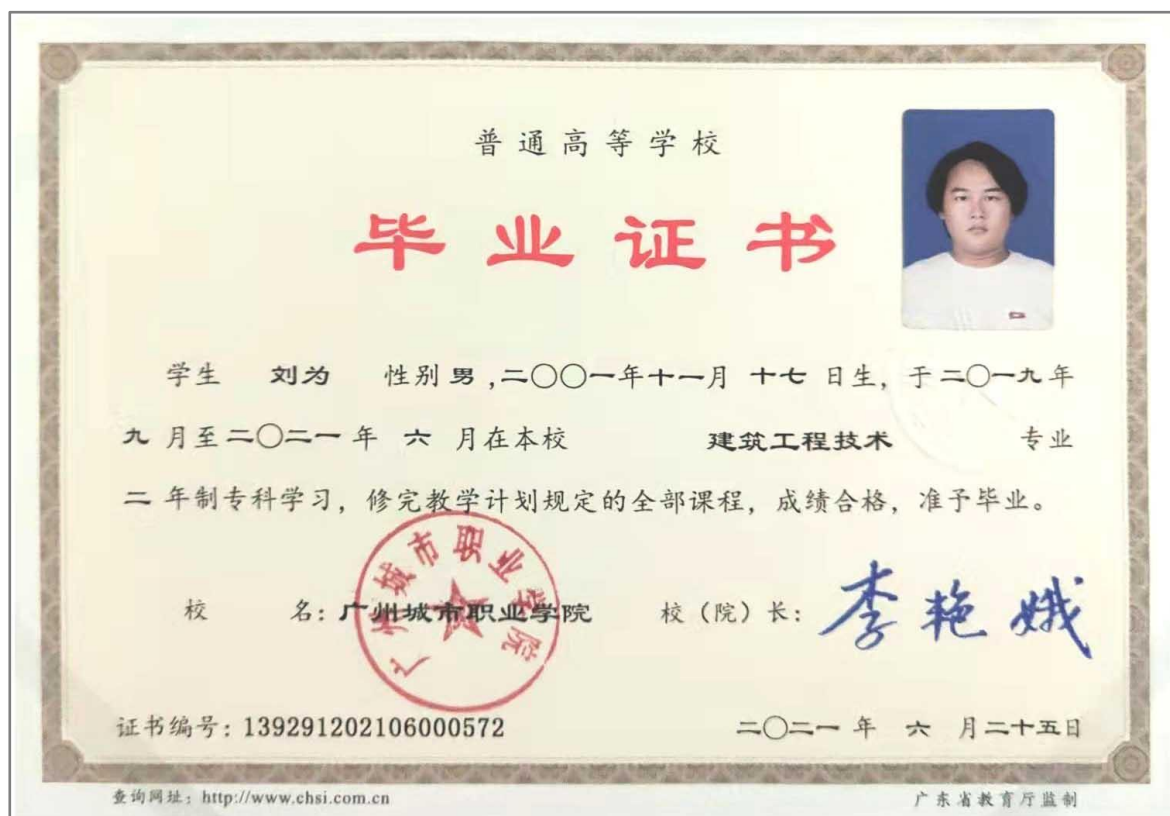 普通高等学校
毕业证书
学生 刘为 性别 男，二〇〇一年十一月 十七 日生，于二〇一九年
九月至二〇二一年 六 月在本校 建筑工程技术 专业
二年制专科学习，修完教学计划规定的全部课程，成绩合格，准予毕业。
广州城市职业学院
校 名：广州城市职业学院 校（院）长：李艳娥
证书编号：139291202106000572 二〇二一年 六 月二十五日
查询网址：http://www.chsi.com.cn 广东省教育厅监制